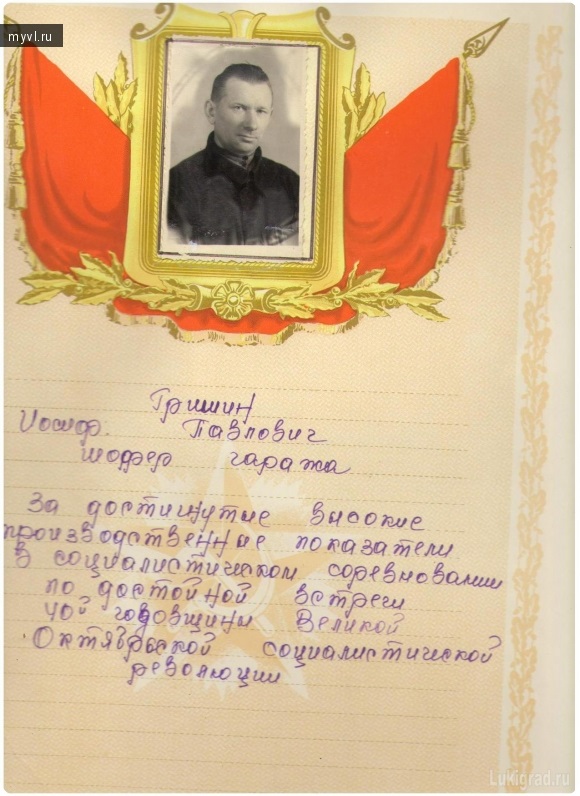 myvl.ru
Гришин
Иосиф. Павлович
шофер гаража
За достигнутые высокие
производственные показатели
в социалистическом соревновании
по достойной встречи
40й годовщины Великой
Октябрьской социалистической
революции
Lukigrad.ru